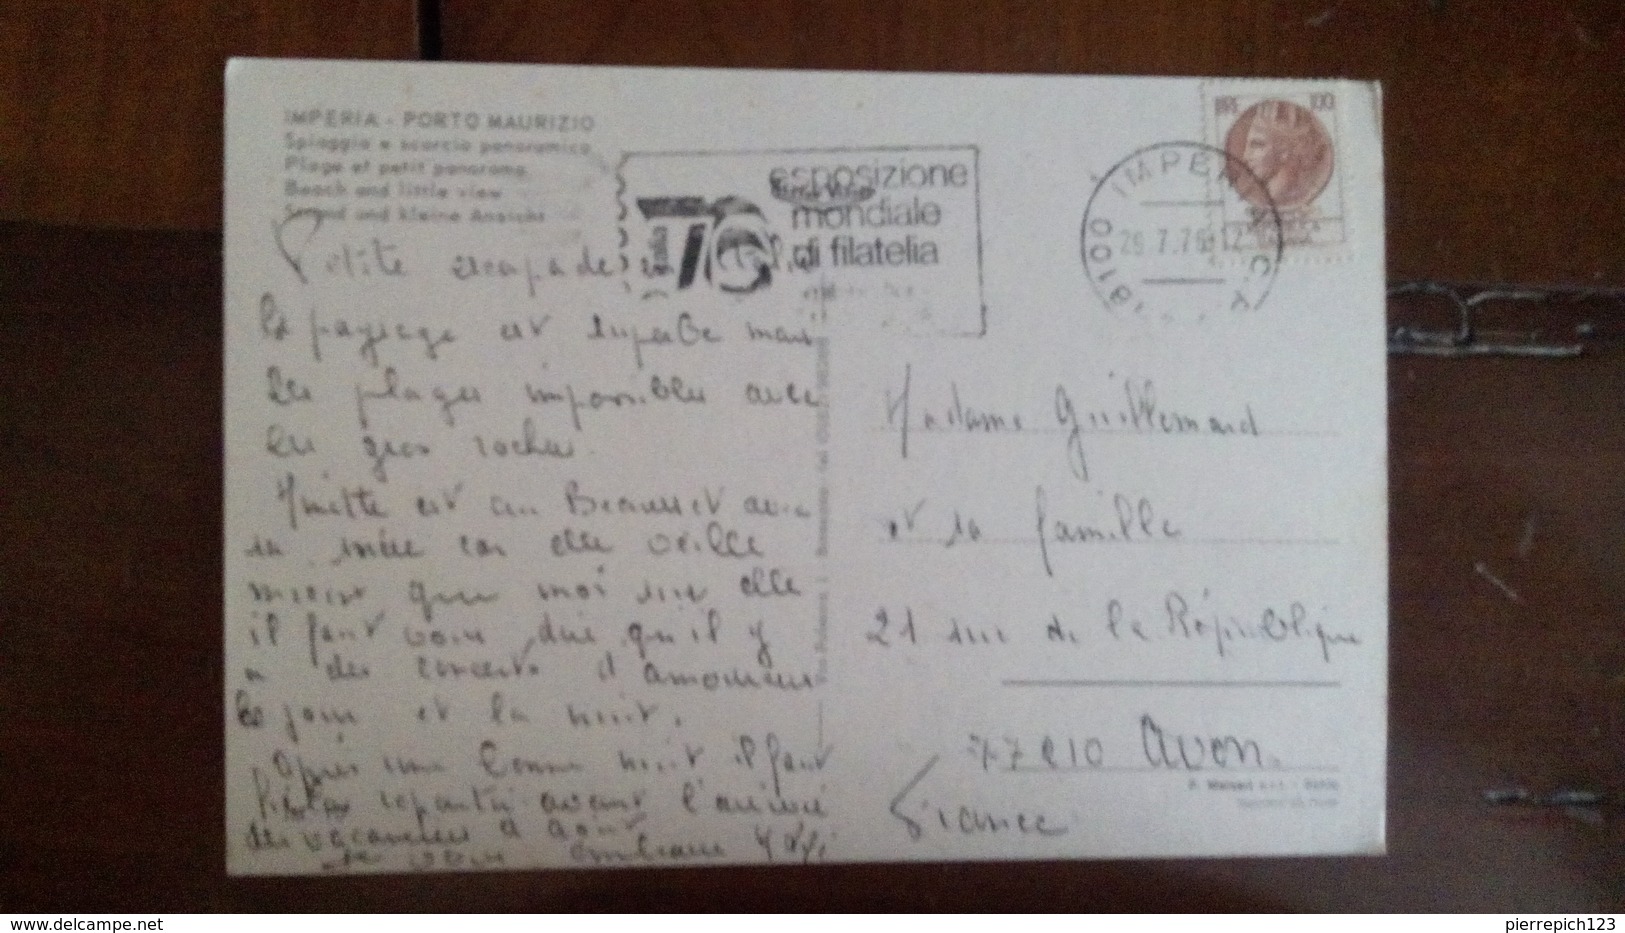 IMPERIA - PORTO MAURIZIO
Spiaggia e scorcio panoramico
Plage et petit panorama
Beach and little view
Strand und kleine Ansicht
esposizione
mondiale
di filatelia
76
LIRE 100
18100 IMPERIA C.P.
7.76-12
Petite escapade en
Le paysage est superbe mais
les plages impossibles avec
les gros rochers.
est au Beausset avec
sa mère car elle veille
mieux que moi sur elle
il faut vous dire qu'il y
a des concerts d'amoureux
le jour et la nuit.
Après une bonne nuit il faut
repartir avant l'arrivée
des vacanciers d'Août
Madame Guillemard
et sa famille
21 rue de la République
77210 Avon.
France
delcampe.net
pierrepich123